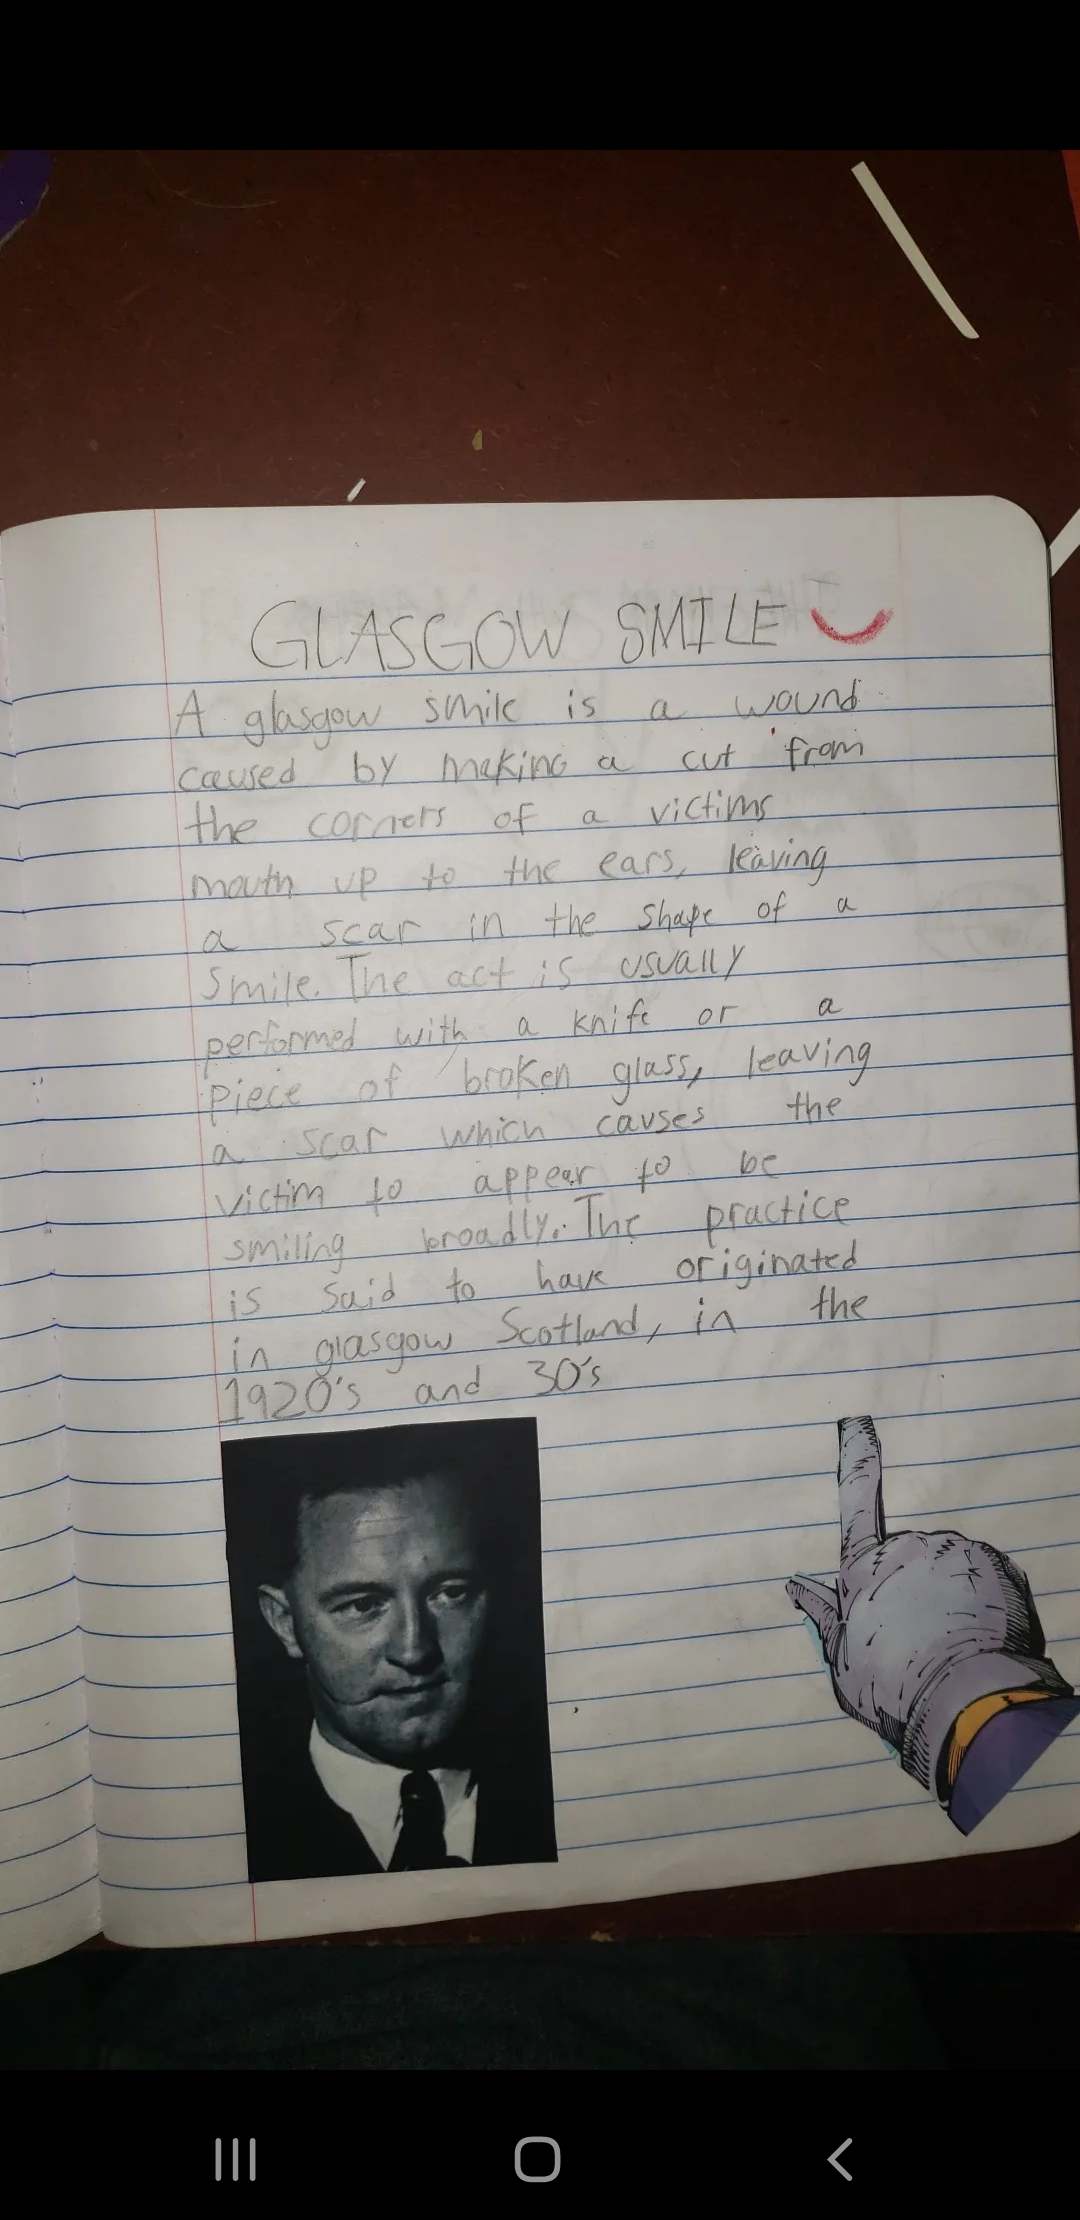 GLASGOW SMILE
A glasgow smile is a wound
caused by making a cut from
the corners of a victims
mouth up to the ears, leaving
a scar in the shape of a
smile. The act is usually
performed with a knife or a
piece of broken glass, leaving
a scar which causes the
victim to appear to be
smiling broadly. The practice
is said to have originated
in glasgow Scotland, in the
1920's and 30's